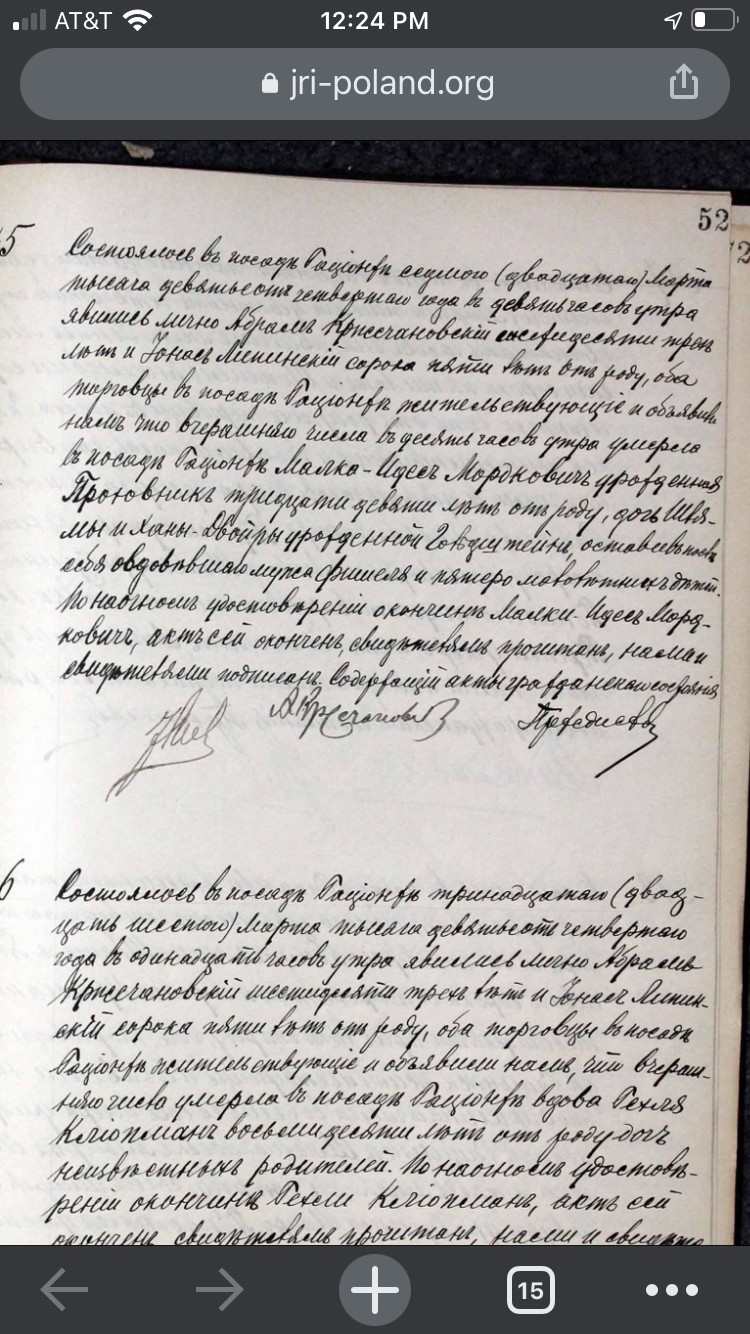 AT&T
12:24 PM
jri-poland.org
52
5
Состоялось въ посадѣ Раціонжѣ седьмого (двадцатаго) Марта
тысяча девятьсотъ четвертаго года въ девять часовъ утра
явились лично Абрамъ Кржечановскій шестидесяти трехъ
лѣтъ и Іонасъ Липинскій сорока пяти лѣтъ отъ роду, оба
торговцы въ посадѣ Раціонжѣ жительствующіе и объявили
намъ что вчерашняго числа въ десять часовъ утра умерла
въ посадѣ Раціонжѣ Малка-Идесъ Мордковичъ урожденная
тридцати девяти лѣтъ отъ роду, дочь
и Ханы-Двойры урожденной оставивъ послѣ
себя овдовѣвшаго мужа Фишеля и пятеро дѣтей.
По наочномъ удостовѣреніи о кончинѣ Малки-Идесъ Морд-
ковичъ, актъ сей оконченъ, свидѣтелямъ прочитанъ, нами и
свидѣтелями подписанъ. Содержащій акты гражданскаго состоянія
6
Состоялось въ посадѣ Раціонжѣ тринадцатаго (двад-
цать шестого) Марта тысяча девятьсотъ четвертаго
года въ одинадцать часовъ утра явились лично Абрамъ
Кржечановскій шестидесяти трехъ лѣтъ и Іонасъ Липин-
скій сорока пяти лѣтъ отъ роду, оба торговцы въ посадѣ
Раціонжѣ жительствующіе и объявили намъ, что вчераш-
няго числа умерла въ посадѣ Раціонжѣ вдова Рехля
Кліопманъ восьмидесяти лѣтъ отъ роду дочь
неизвѣстныхъ родителей. По наочномъ удостовѣ-
реніи о кончинѣ Рехли Кліопманъ, актъ сей
оконченъ свидѣтелямъ прочитанъ, нами и
15